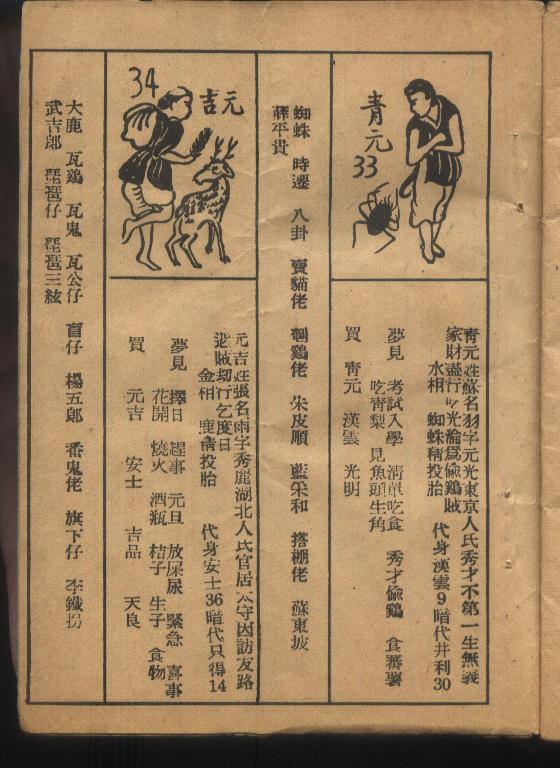 青元
33
青元姓蘇名羽字元光東京人氏秀才不第一生無義
家財盡行 光淪爲偷鷄賊
水相 蜘蛛精投胎 代身漢雲9暗代井利30
夢見 考試入學 清單吃食 秀才偷鷄 食蕃薯
吃青梨 見魚頭生角
買 青元 漢雲 光明
蜘蛛 時遷 八卦 賣貓佬 鷄佬 朱皮順 藍采和 搭棚佬 蘇東坡
薛平貴
元吉
34
元吉姓張名雨字秀麗湖北人氏官居太守因訪友路
賊刼行乞度日
金相 鹿精投胎 代身安士36暗代只得14
夢見 擇日 趕事 元旦 放屎尿 緊急 喜事
花開 燒火 酒瓶 桔子 生子 食物
買 元吉 安士 吉品 天良
大鹿 瓦鷄 瓦鬼 瓦公仔 盲仔 楊五郎 番鬼佬 旗下仔 李鐵拐
武吉郎 琵琶仔 琵琶三絃